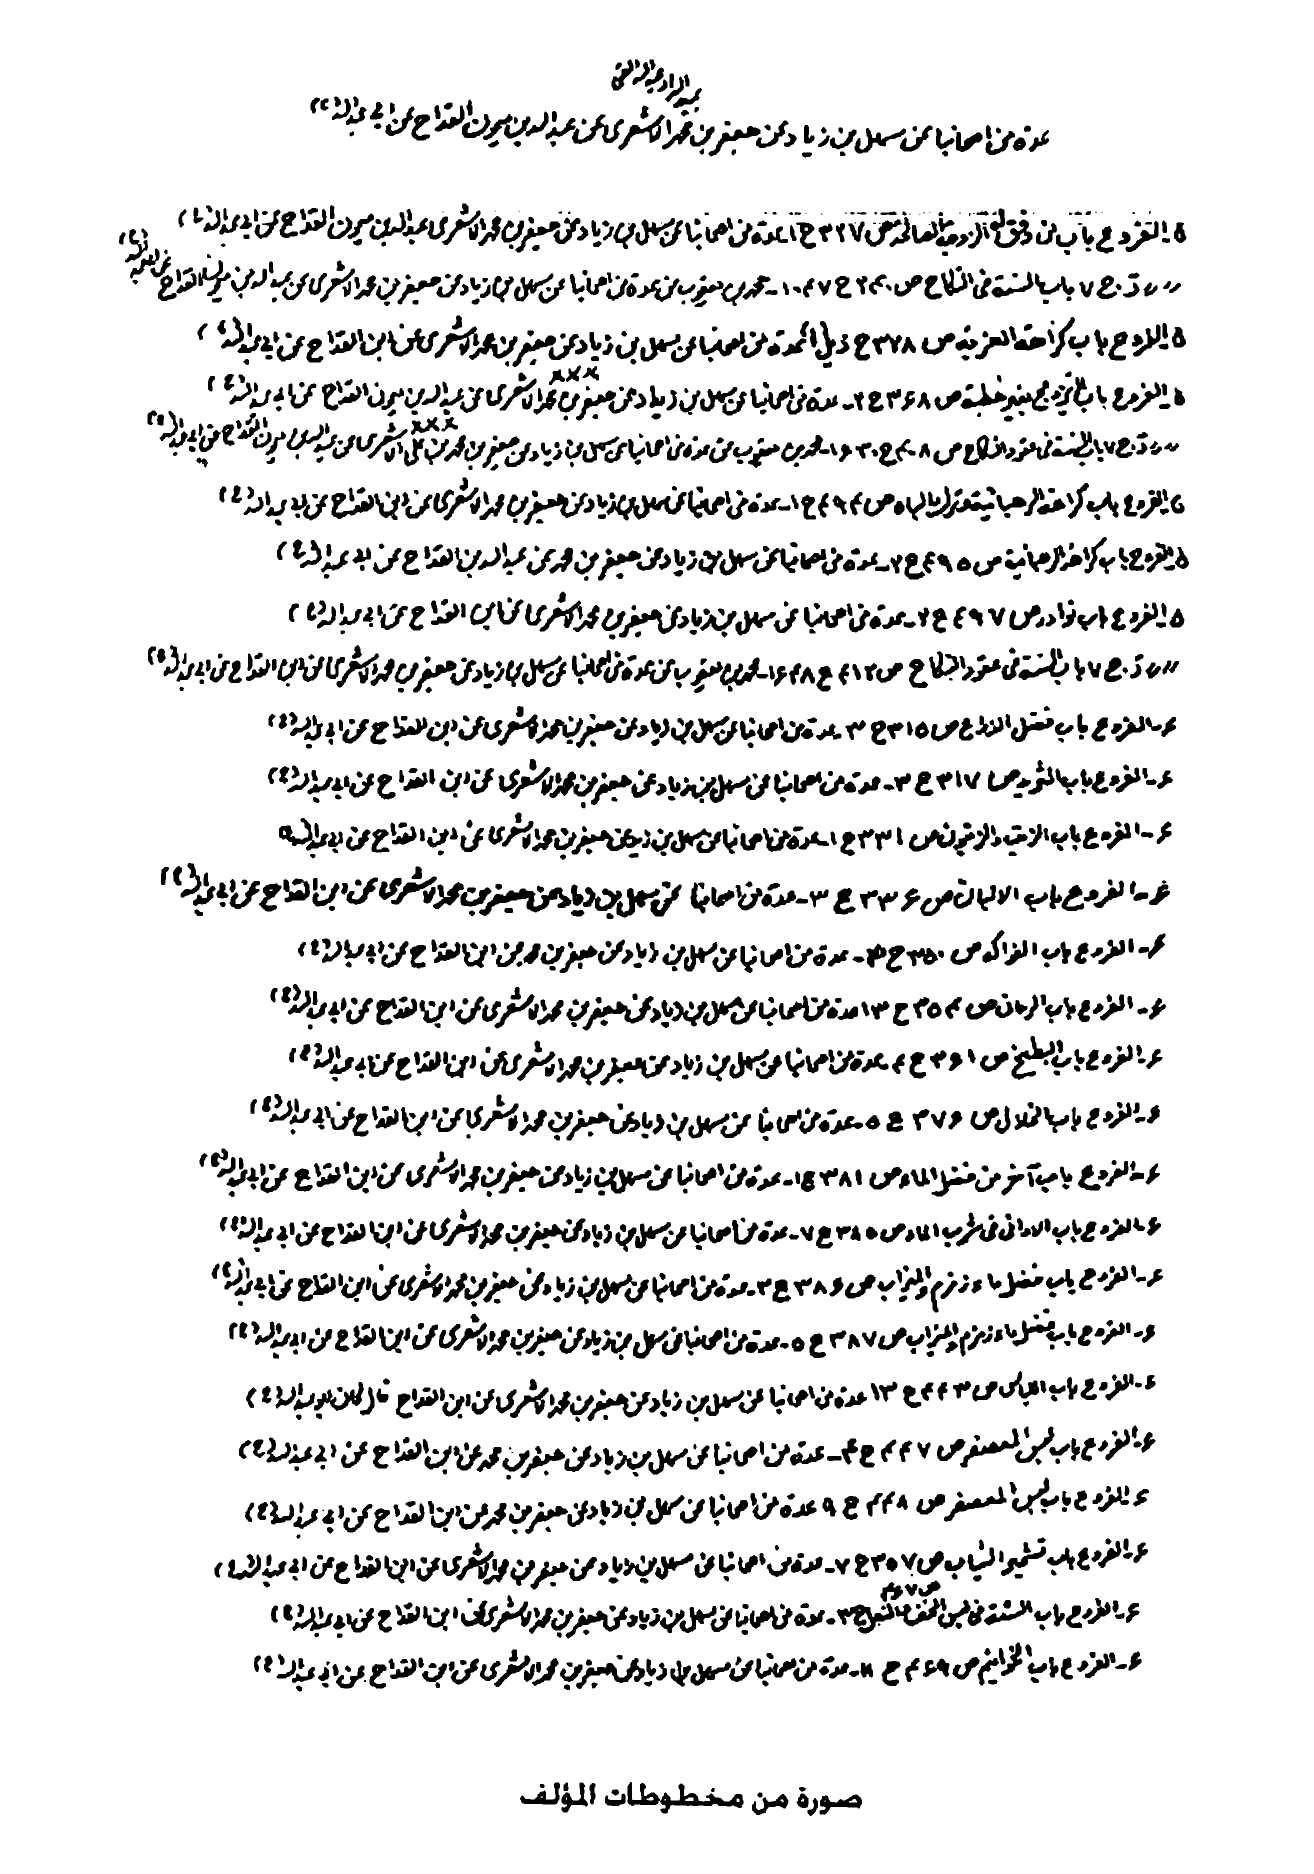 عبيد الله الدهقان
عدة من اصحابنا عن سهل بن زياد عن جعفر بن محمد الاشعرى عن عبد الله بن ميمون القداح عن ابي عبد الله (ع)
۵ـ الفروع باب من وفق له الزوجة الصالحة ص ۳۲۷ ح ۱ـ عدة من اصحابنا عن سهل بن زياد عن جعفر بن محمد الاشعرى عن عبد الله بن ميمون القداح عن ابي عبد الله (ع)
〃 〃 ج ۷ باب السنة فى النكاح ص ۲۴۰ ح ۱۰۴۷ـ محمد بن يعقوب عن عدة من اصحابنا عن سهل بن زياد عن جعفر بن محمد الاشعرى عن عبد الله بن ميمون القداح عن ابي عبد الله (ع)
۵ـ الفروع باب كراهة العزبة ص ۳۷۸ ح ذيل عدة من اصحابنا عن سهل بن زياد عن جعفر بن محمد الاشعرى عن ابن القداح عن ابي عبد الله (ع)
۵ـ الفروع باب التزويج بغير خطبة ص ۳۶۸ ح ۲ـ عدة من اصحابنا عن سهل بن زياد عن جعفر بن محمد الاشعرى عن عبد الله بن ميمون القداح عن ابي عبد الله (ع)
〃 〃 ج ۷ باب السنة فى عقود النكاح ص ۴۰۸ ح ۱۶۳۰ـ محمد بن يعقوب عن عدة من اصحابنا عن سهل بن زياد عن جعفر بن محمد بن على الاشعرى عن عبد الله بن ميمون القداح عن ابي عبد الله (ع)
۵ـ الفروع باب كراهة الرهبانية وترك الباه ص ۴۹۴ ح ۱ـ عدة من اصحابنا عن سهل بن زياد عن جعفر بن محمد الاشعرى عن ابن القداح عن ابي عبد الله (ع)
۵ـ الفروع باب كراهة الرهبانية ص ۴۹۵ ح ۲ـ عدة من اصحابنا عن سهل بن زياد عن جعفر بن محمد عن عبد الله بن القداح عن ابي عبد الله (ع)
۵ـ الفروع باب نوادر ص ۴۹۷ ح ۲ـ عدة من اصحابنا عن سهل بن زياد عن جعفر بن محمد الاشعرى عن ابن القداح عن ابي عبد الله (ع)
〃 〃 ج ۷ باب السنة فى عقود النكاح ص ۴۱۲ ح ۱۶۴۸ـ محمد بن يعقوب عن عدة من اصحابنا عن سهل بن زياد عن جعفر بن محمد الاشعرى عن ابن القداح عن ابي عبد الله (ع)
۶ـ الفروع باب فضل الذراع ص ۳۱۵ ح ۳ـ عدة من اصحابنا عن سهل بن زياد عن جعفر بن محمد الاشعرى عن ابن القداح عن ابي عبد الله (ع)
۶ـ الفروع باب الثريد ص ۳۱۷ ح ۳ـ عدة من اصحابنا عن سهل بن زياد عن جعفر بن محمد الاشعرى عن ابن القداح عن ابي عبد الله (ع)
۶ـ الفروع باب الزيت والزيتون ص ۳۳۱ ح ۱ـ عدة من اصحابنا عن سهل بن زياد عن جعفر بن محمد الاشعرى عن ابن القداح عن ابي عبد الله (ع)
۶ـ الفروع باب الالبان ص ۳۳۶ ح ۳ـ عدة من اصحابنا عن سهل بن زياد عن جعفر بن محمد الاشعرى عن ابن القداح عن ابي عبد الله (ع)
۶ـ الفروع باب الفواكه ص ۳۵۰ ح ۴ـ عدة من اصحابنا عن سهل بن زياد عن جعفر بن محمد عن ابن القداح عن ابي عبد الله (ع)
۶ـ الفروع باب الرمان ص ۳۵۴ ح ۱۳ عدة من اصحابنا عن سهل بن زياد عن جعفر بن محمد الاشعرى عن ابن القداح عن ابي عبد الله (ع)
۶ـ الفروع باب البطيخ ص ۳۶۱ ح ۴ـ عدة من اصحابنا عن سهل بن زياد عن جعفر بن محمد الاشعرى عن ابن القداح عن ابي عبد الله (ع)
۶ـ الفروع باب الخلال ص ۳۷۶ ح ۵ـ عدة من اصحابنا عن سهل بن زياد عن جعفر بن محمد الاشعرى عن ابن القداح عن ابي عبد الله (ع)
۶ـ الفروع باب آخر من فضل الماء ص ۳۸۱ ح ۱ـ عدة من اصحابنا عن سهل بن زياد عن جعفر بن محمد الاشعرى عن ابن القداح عن ابي عبد الله (ع)
۶ـ الفروع باب الاوانى فى شرب الماء ص ۳۸۵ ح ۷ـ عدة من اصحابنا عن سهل بن زياد عن جعفر بن محمد الاشعرى عن ابن القداح عن ابي عبد الله (ع)
۶ـ الفروع باب فضل ماء زمزم والميزاب ص ۳۸۶ ح ۳ـ عدة من اصحابنا عن سهل بن زياد عن جعفر بن محمد الاشعرى عن ابن القداح عن ابي عبد الله (ع)
۶ـ الفروع باب فضل ماء زمزم والميزاب ص ۳۸۷ ح ۵ـ عدة من اصحابنا عن سهل بن زياد عن جعفر بن محمد الاشعرى عن ابن القداح عن ابي عبد الله (ع)
۶ـ الفروع باب اللباس ص ۴۴۳ ح ۱۳ عدة من اصحابنا عن سهل بن زياد عن جعفر بن محمد الاشعرى عن ابن القداح قال كان ابو عبد الله (ع)
۶ـ الفروع باب لبس المعصفر ص ۴۴۷ ح ۴ـ عدة من اصحابنا عن سهل بن زياد عن جعفر بن محمد عن ابن القداح عن ابي عبد الله (ع)
۶ـ الفروع باب لبس المعصفر ص ۴۴۸ ح ۹ عدة من اصحابنا عن سهل بن زياد عن جعفر بن محمد عن ابن القداح عن ابي عبد الله (ع)
۶ـ الفروع باب تشمير الثياب ص ۳۵۷ ح ۷ـ عدة من اصحابنا عن سهل بن زياد عن جعفر بن محمد الاشعرى عن ابن القداح عن ابي عبد الله (ع)
۶ـ الفروع باب السنة فى لبس الخف والنعل ص ۴۶۷ ح ۳ـ عدة من اصحابنا عن سهل بن زياد عن جعفر بن محمد الاشعرى عن ابن القداح عن ابي عبد الله (ع)
۶ـ الفروع باب الخواتيم ص ۴۶۹ ح ۱۱ـ عدة من اصحابنا عن سهل بن زياد عن جعفر بن محمد الاشعرى عن ابن القداح عن ابي عبد الله (ع)
صورة من مخطوطات المؤلف